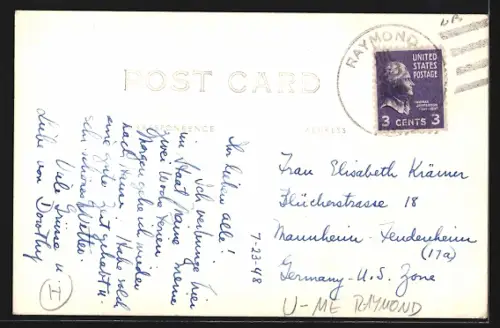 RAYMOND
UNITED STATES POSTAGE
3 CENTS 3
POST CARD
CORRESPONDENCE
ADDRESS
Ihr lieben alle!
Ich verbringe hier
im Staat Maine meine
zwei Wochen Ferien.
Morgen geht es wieder
nach Hause. Habe solch
eine gute Zeit gehabt u.
sehr schönes Wetter.
Viele Grüsse u.
Liebe von Dorothy
I
7-23-48
Frau Elisabeth Krämer
Blücherstrasse 18
Mannheim-Feudenheim
(17a)
Germany-U.S. Zone
U-ME RAYMOND